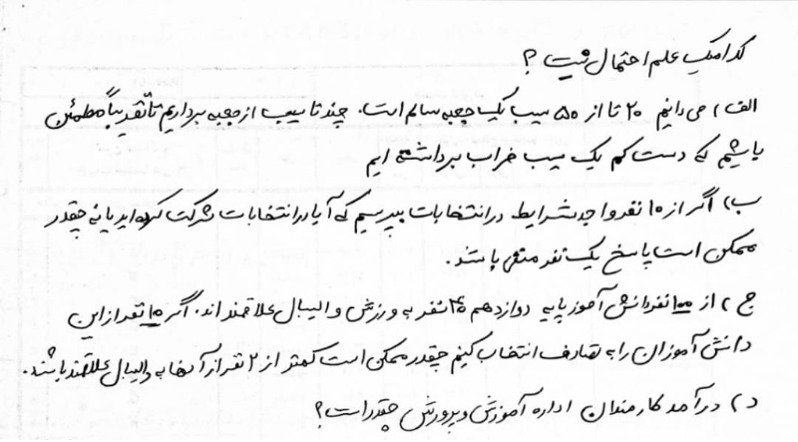 کدامیک علم احتمال نیست ؟
الف) می دانیم ۲۰ تا از ۵۰ سیب یک جعبه سالم است. چند تا سیب از جعبه برداریم تا تقریباً مطمئن
باشیم که دست کم یک سیب خراب برداشته ایم
ب) اگر از ۱۰ نفر واجد شرایط در انتخابات بپرسیم که آیا در انتخابات شرکت کرده اید یا نه چقدر
ممکن است پاسخ یک نفر منفی باشد.
ج) از ۱۰۰ نفر دانش آموز پایه دوازدهم ۴۵ نفر به ورزش والیبال علاقمند اند. اگر ۱۰ نفر از این
دانش آموزان را به تصادف انتخاب کنیم چقدر ممکن است کمتر از ۲ نفر از آنها به والیبال علاقمند باشند.
د) درآمد کارمندان اداره آموزش و پرورش چقدر است؟